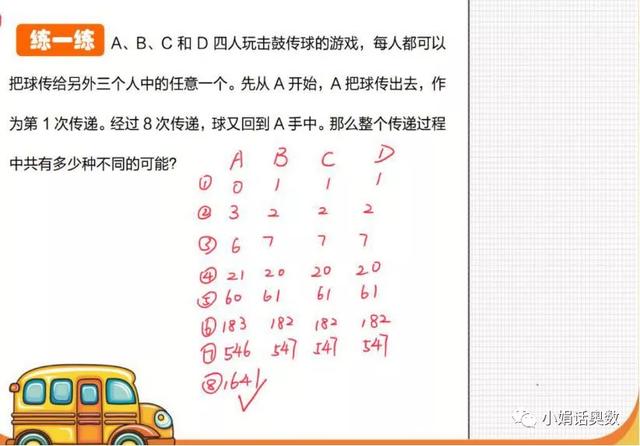 练一练 A、B、C 和 D 四人玩击鼓传球的游戏，每人都可以
把球传给另外三个人中的任意一个。先从 A 开始，A 把球传出去，作
为第 1 次传递。经过 8 次传递，球又回到 A 手中。那么整个传递过程
中共有多少种不同的可能？
A B C D
① 0 1 1 1
② 3 2 2 2
③ 6 7 7 7
④ 21 20 20 20
⑤ 60 61 61 61
⑥ 183 182 182 182
⑦ 546 547 547 547
⑧ 1641
小娟话奥数